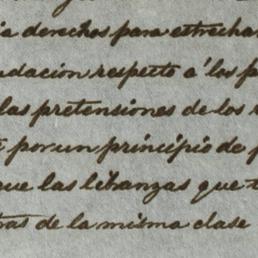 ia derechos para estrechar
udacion respecto á los p
las pretensiones de los
por un principio de p
que las libranzas que t
ras de la misma clase